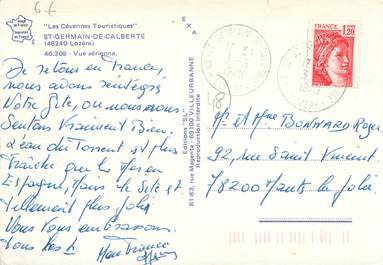 6 f
"Les Cévennes Touristiques"
ST-GERMAIN-DE-CALBERTE
(48240-Lozère)
46.309 - Vue aérienne.
De retour en France,
nous avons réintégré
Votre gîte, où nous nous
Sentons Vraiment Bien.
L'eau du Torrent est plus
Fraîche que la Mer en
Espagne, Mais le Site est
tellement plus joli.
Nous Vous embrassons
Tous les
Marc France
EXA
Editions "SL"
81-83, rue Magenta - 69100 VILLEURBANNE
Reproduction Interdite
18
FRANCE
1,20
Mr et Mme BONNARD Roger
92, rue Saint Vincent
78200 Mantes la Jolie